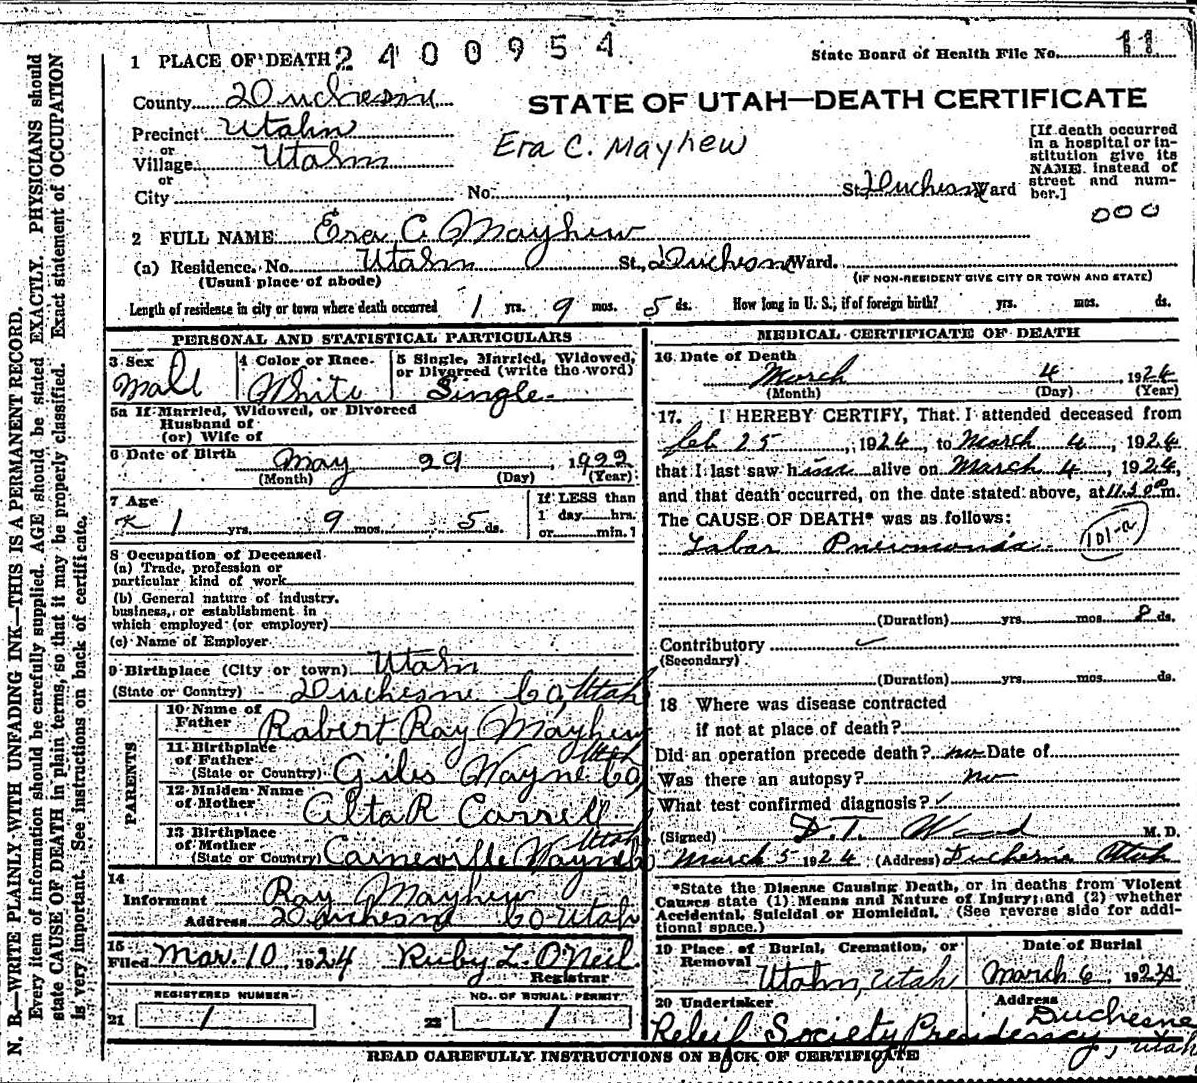 1 PLACE OF DEATH 2400954
State Board of Health File No. 11
County Duchesne
STATE OF UTAH—DEATH CERTIFICATE
Precinct Utahn
or
Village Utahn
Era C. Mayhew
[If death occurred in a hospital or institution give its NAME instead of street and number.]
or
City No. St. Duchesne Ward
000
2 FULL NAME Era C. Mayhew
(a) Residence. No. Utahn St., Duchesne Ward.
(Usual place of abode) (IF NON-RESIDENT GIVE CITY OR TOWN AND STATE)
Length of residence in city or town where death occurred 1 yrs. 9 mos. 5 ds. How long in U. S., if of foreign birth? yrs. mos. ds.
PERSONAL AND STATISTICAL PARTICULARS
3 Sex Male
4 Color or Race. White
5 Single, Married, Widowed, or Divorced (write the word) Single
5a If Married, Widowed, or Divorced
Husband of
(or) Wife of
6 Date of Birth May 29, 1922
(Month) (Day) (Year)
7 Age 1 yrs. 9 mos. 5 ds.
If LESS than
1 day hrs.
or min.
8 Occupation of Deceased
(a) Trade, profession or
particular kind of work
(b) General nature of industry,
business, or establishment in
which employed (or employer)
(c) Name of Employer
9 Birthplace (City or town) Utahn
(State or Country) Duchesne Co, Utah
PARENTS
10 Name of Father Robert Ray Mayhew
11 Birthplace of Father (State or Country) Giles Wayne Co, Utah
12 Maiden Name of Mother Alta R Carrell
13 Birthplace of Mother (State or Country) Caineville Wayne Co Utah
14
Informant Ray Mayhew
Address Duchesne Co Utah
15
Filed Mar. 10, 1924 Ruby L. O'Neil
Registrar
REGISTERED NUMBER
21 1
NO. OF BURIAL PERMIT
22 1
MEDICAL CERTIFICATE OF DEATH
16 Date of Death
March 4, 1924
(Month) (Day) (Year)
17. I HEREBY CERTIFY, That I attended deceased from
Feb 25, 1924, to March 4, 1924
that I last saw him alive on March 4, 1924,
and that death occurred, on the date stated above, at m.
The CAUSE OF DEATH* was as follows:
Lobar Pneumonia 101-a
(Duration) yrs. mos. 8 ds.
Contributory
(Secondary)
(Duration) yrs. mos. ds.
18 Where was disease contracted
if not at place of death?
Did an operation precede death? no Date of
Was there an autopsy? no
What test confirmed diagnosis?
(Signed) D.T. Wood M. D.
March 5 1924 (Address) Duchesne Utah
*State the Disease Causing Death, or in deaths from Violent
Causes state (1) Means and Nature of Injury; and (2) whether
Accidental, Suicidal or Homicidal. (See reverse side for addi-
tional space.)
19 Place of Burial, Cremation, or Removal
Utahn, Utah
Date of Burial
March 6, 1924
20 Undertaker
Releif Society Presidency
Address
Duchesne, Utah
READ CAREFULLY. INSTRUCTIONS ON BACK OF CERTIFICATE
N. B.—WRITE PLAINLY WITH UNFADING INK—THIS IS A PERMANENT RECORD.
Every item of information should be carefully supplied. AGE should be stated EXACTLY. PHYSICIANS should
state CAUSE OF DEATH in plain terms, so that it may be properly classified. Exact statement of OCCUPATION
is very important. See instructions on back of certificate.